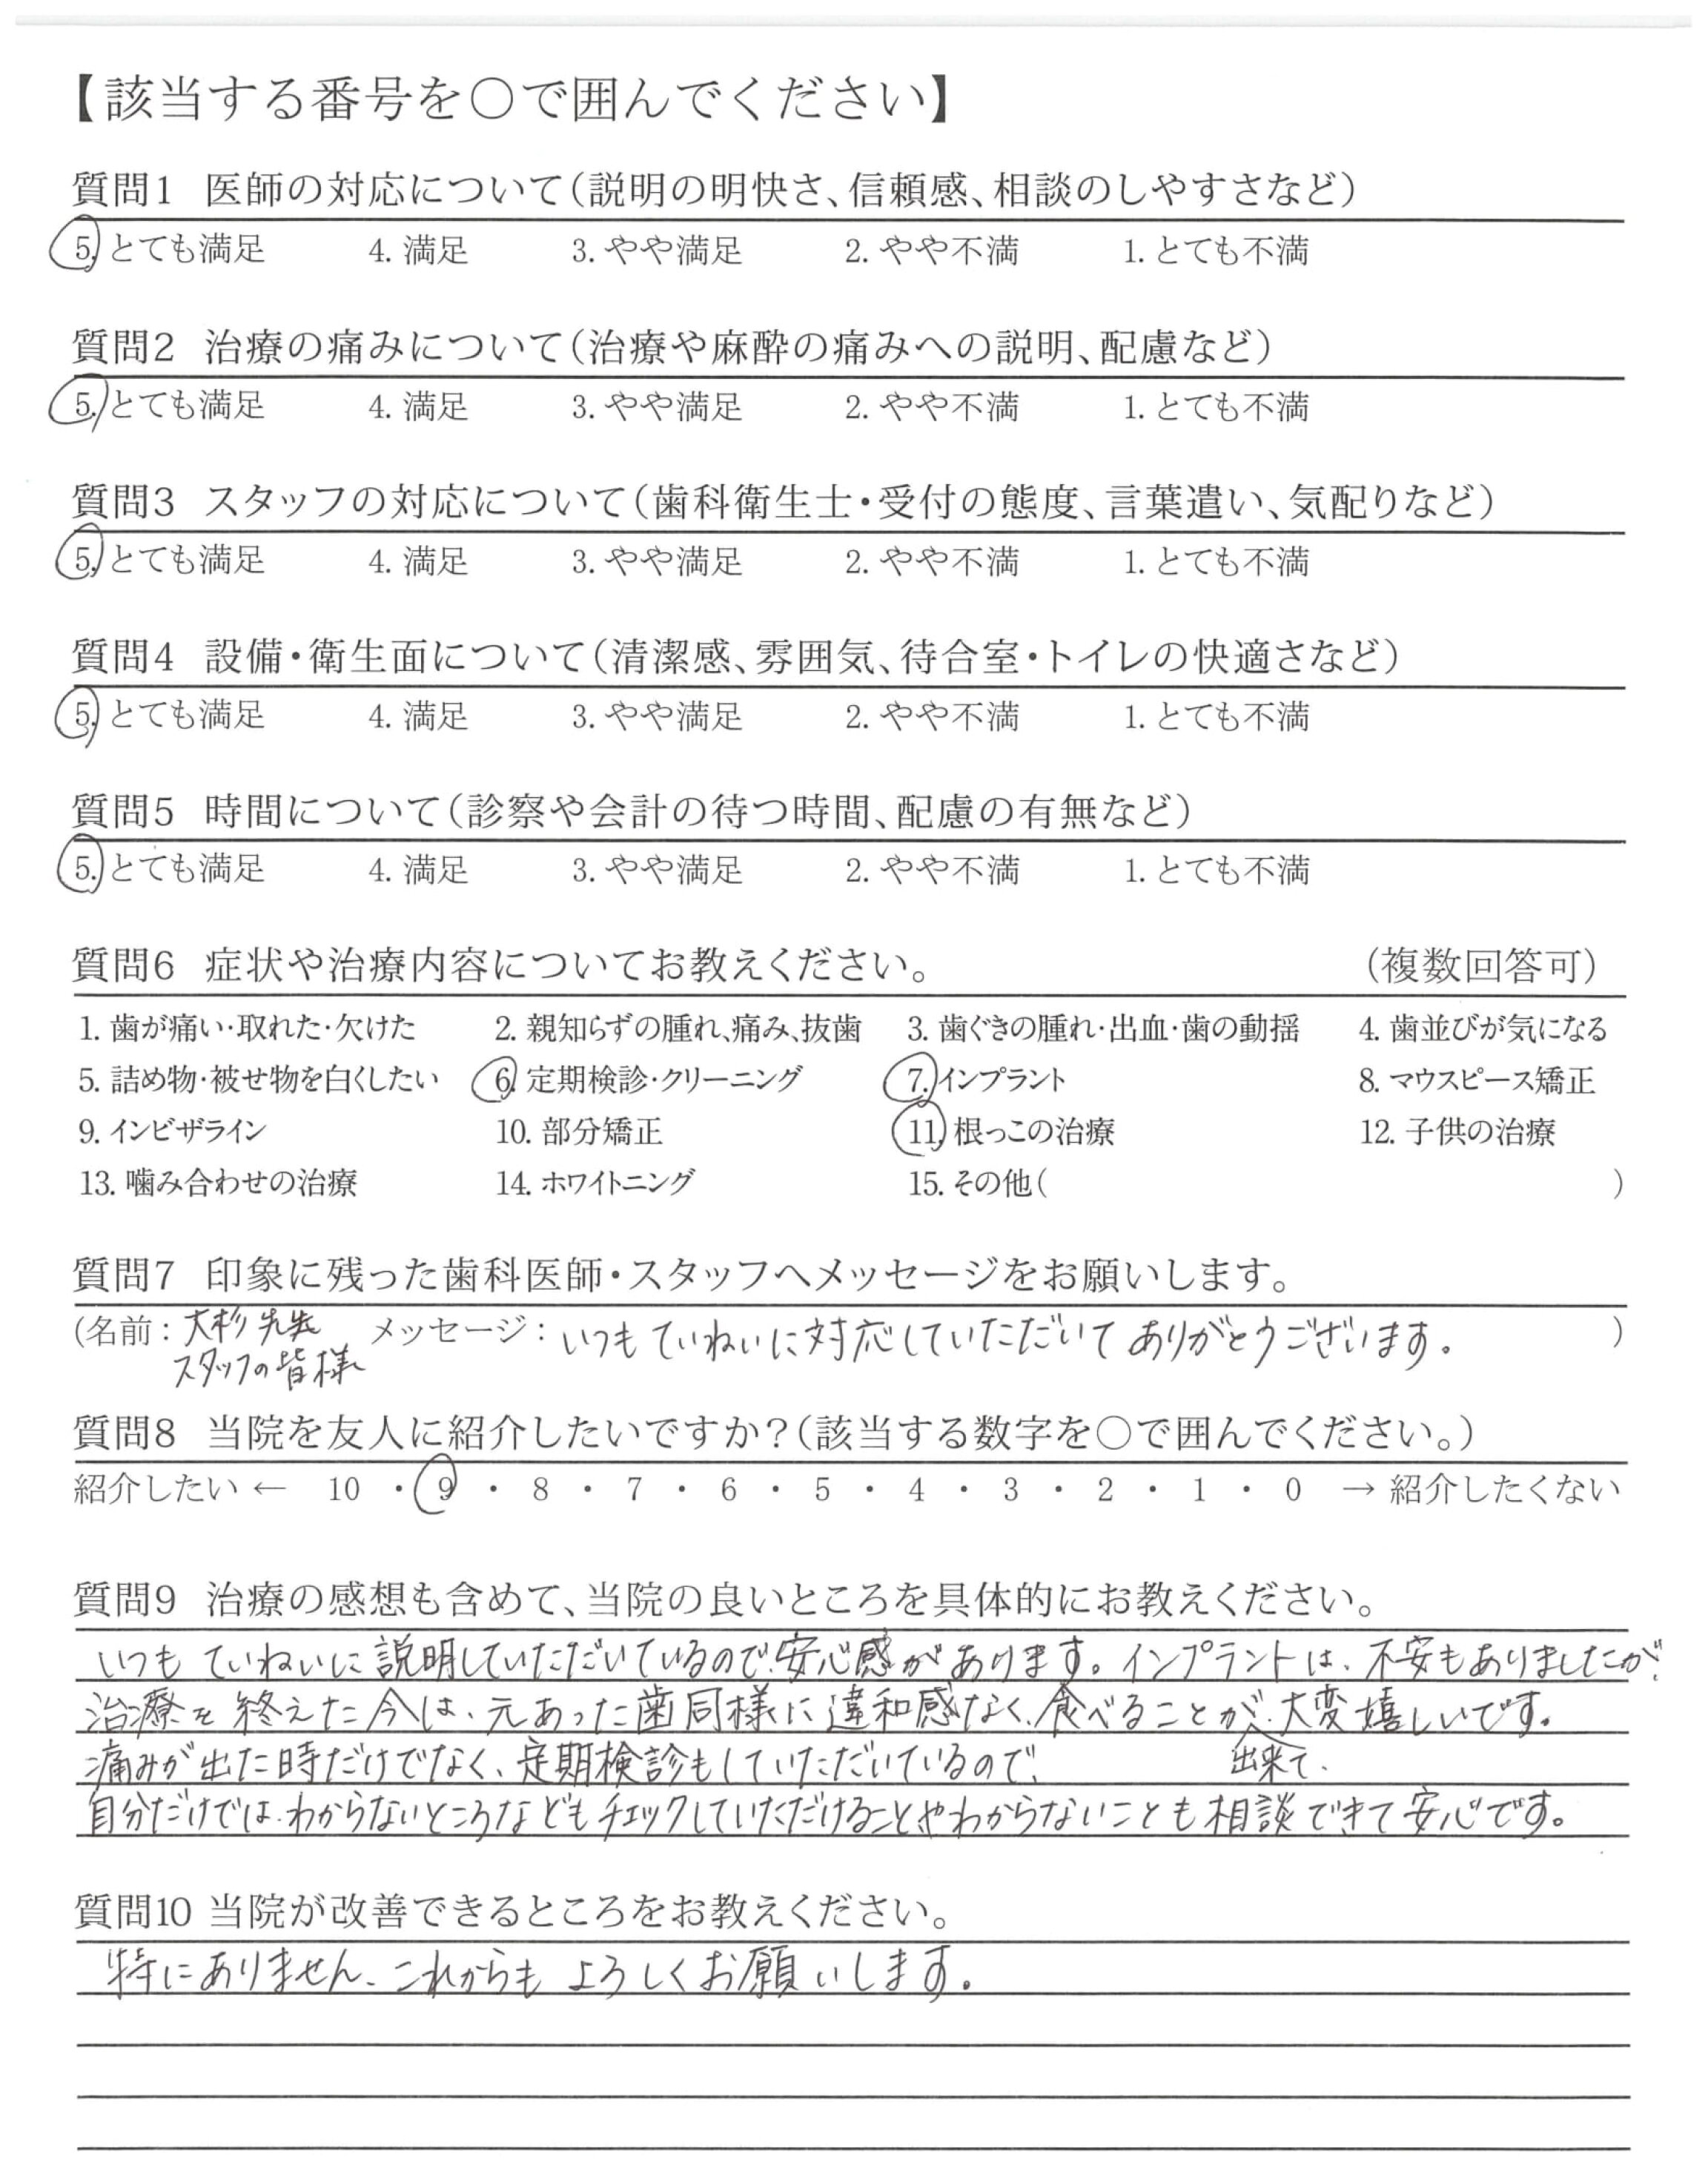 【該当する番号を〇で囲んでください】
質問1 医師の対応について（説明の明快さ、信頼感、相談のしやすさなど）
5. とても満足 4. 満足 3. やや満足 2. やや不満 1. とても不満
質問2 治療の痛みについて（治療や麻酔の痛みへの説明、配慮など）
5. とても満足 4. 満足 3. やや満足 2. やや不満 1. とても不満
質問3 スタッフの対応について（歯科衛生士・受付の態度、言葉遣い、気配りなど）
5. とても満足 4. 満足 3. やや満足 2. やや不満 1. とても不満
質問4 設備・衛生面について（清潔感、雰囲気、待合室・トイレの快適さなど）
5. とても満足 4. 満足 3. やや満足 2. やや不満 1. とても不満
質問5 時間について（診察や会計の待つ時間、配慮の有無など）
5. とても満足 4. 満足 3. やや満足 2. やや不満 1. とても不満
質問6 症状や治療内容についてお教えください。 （複数回答可）
1. 歯が痛い・取れた・欠けた 2. 親知らずの腫れ、痛み、抜歯 3. 歯ぐきの腫れ・出血・歯の動揺 4. 歯並びが気になる
5. 詰め物・被せ物を白くしたい 6. 定期検診・クリーニング 7. インプラント 8. マウスピース矯正
9. インビザライン 10. 部分矯正 11. 根っこの治療 12. 子供の治療
13. 噛み合わせの治療 14. ホワイトニング 15. その他（ ）
質問7 印象に残った歯科医師・スタッフへメッセージをお願いします。
（名前：大杉先生 メッセージ：いつもていねいに対応していただいてありがとうございます。 ）
スタッフの皆様
質問8 当院を友人に紹介したいですか？（該当する数字を〇で囲んでください。）
紹介したい ← 10 ・ 9 ・ 8 ・ 7 ・ 6 ・ 5 ・ 4 ・ 3 ・ 2 ・ 1 ・ 0 → 紹介したくない
質問9 治療の感想も含めて、当院の良いところを具体的にお教えください。
いつもていねいに説明していただいているので、安心感があります。インプラントは、不安もありましたが、
治療を終えた今は、元あった歯同様に違和感なく、食べることが、大変嬉しいです。
痛みが出た時だけでなく、定期検診もしていただいているので、 出来て、
自分だけでは、わからないところなどもチェックしていただけることやわからないことも相談できて安心です。
質問10 当院が改善できるところをお教えください。
特にありません、これからもよろしくお願いします。